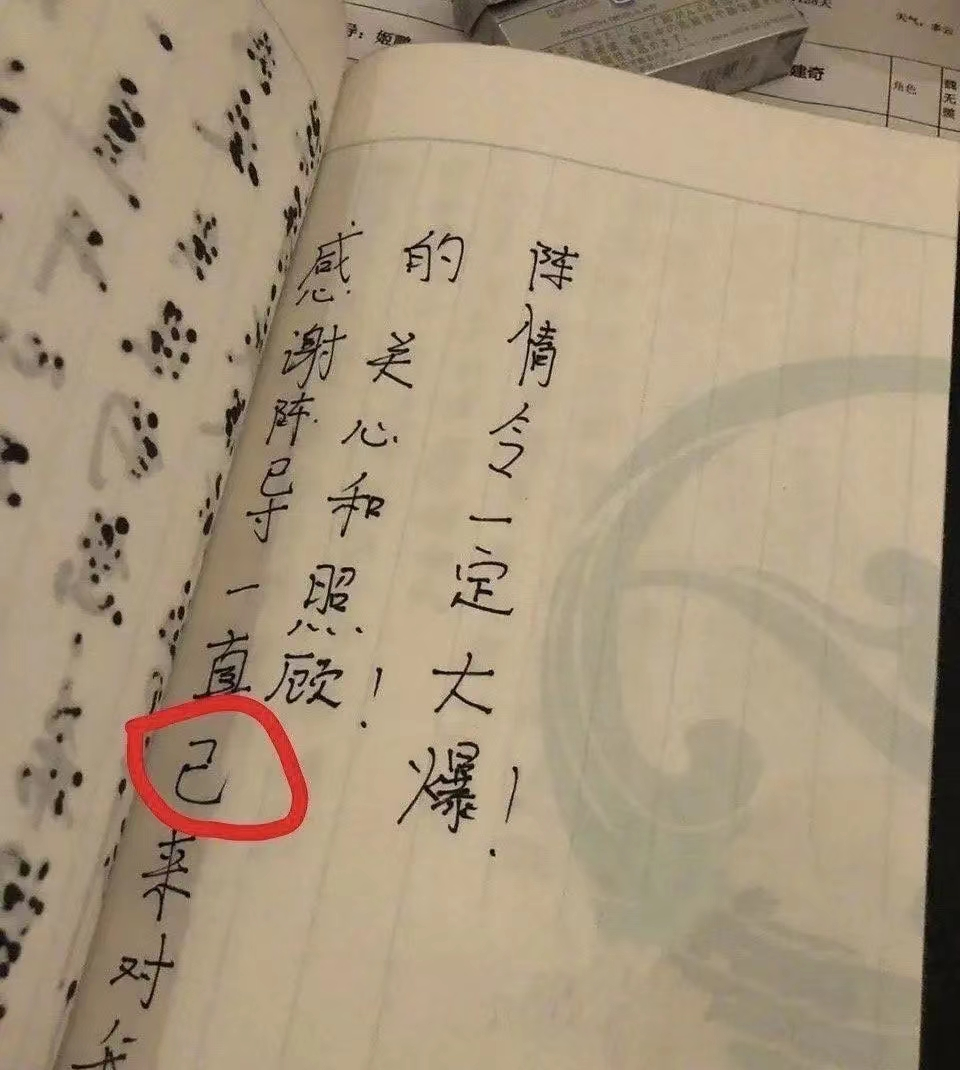 感谢陈导一直己来对我
的关心和照顾！
陈情令一定大爆！
导：姬鹏
天气：多云
建奇
角色
魏无羡